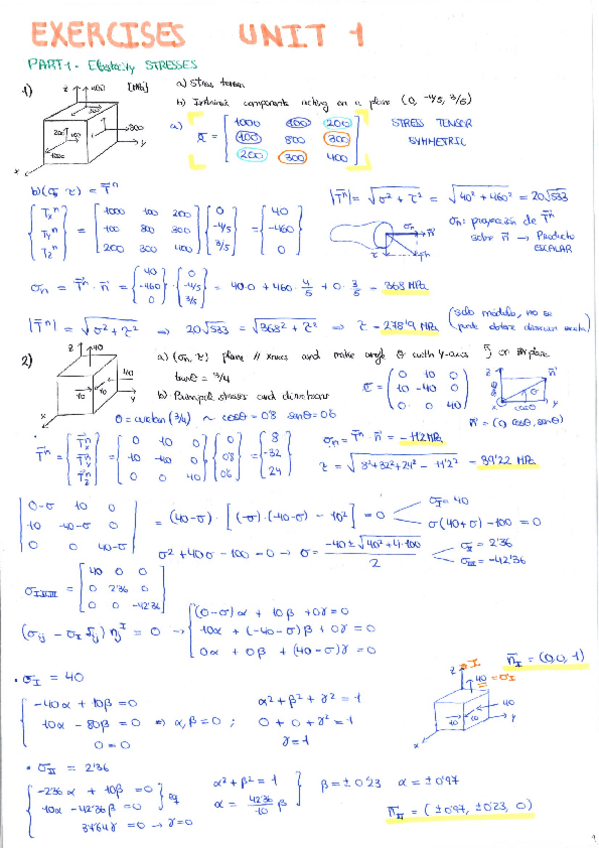 EXERCISES UNIT 1
PART 1 - Elasticity STRESSES
1)
[MPa]
a) Stress tensor
b) Intrinsic components acting on a plane (0, -4/5, 3/5)
a) τ = [1000 100 200; 100 800 300; 200 300 400]
STRESS TENSOR
SYMMETRIC
b) (σ, τ) = T^n
{Tx^n; Ty^n; Tz^n} = [1000 100 200; 100 800 300; 200 300 400] {0; -4/5; 3/5} = {40; -460; 0}
|T^n| = √(σ² + τ²) = √(40² + 460²) = 20√533
σn: proyección de T^n
sobre n → Producto
ESCALAR
σn = T^n · n = {40; -460; 0} · {0; -4/5; 3/5} = 40·0 + 460·4/5 + 0·3/5 = 368 MPa
|T^n| = √(σ² + τ²) ⇒ 20√533 = √(368² + τ²) ⇒ τ = 278'9 MPa
(solo módulo, no se
2)
a) (σn, τ) plane // x-axis and make angle θ with y-axis
tanθ = 3/4
b) Principal stresses and directions
τ = (0 10 0; 10 -40 0; 0 0 40)
θ = arctan (3/4) ~ cosθ = 0'8 senθ = 0'6
n = (0, cosθ, senθ)
T^n = {Tx^n; Ty^n; Tz^n} = [0 10 0; 10 -40 0; 0 0 40] {0; 0'8; 0'6} = {8; -32; 24}
σn = T^n · n = -11'2 MPa
τ = √(8² + 32² + 24² - 11'2²) = 39'22 MPa
|0-σ 10 0; 10 -40-σ 0; 0 0 40-σ| = (40-σ) · [(-σ)·(-40-σ) - 10²] = 0
σI = 40
σ(40+σ) - 100 = 0
σ² + 40σ - 100 = 0 → σ = (-40 ± √(40² + 4·100)) / 2
σII = 2'36
σIII = -42'36
σI,II,III = [40 0 0; 0 2'36 0; 0 0 -42'36]
(σij - σI δij) nj^I = 0 → {(0-σ)α + 10β + 0γ = 0
10α + (-40-σ)β + 0γ = 0
0α + 0β + (40-σ)γ = 0
• σI = 40
nI = (0,0,1)
-40α + 10β = 0
10α - 80β = 0 ⇒ α, β = 0 ;
0 = 0
α² + β² + γ² = 1
0 + 0 + γ² = 1
γ = 1
40 = σI
• σII = 2'36
-2'36α + 10β = 0
10α - 42'36β = 0
37'64γ = 0 → γ = 0
α² + β² = 1
α = 42'36/10 β
β = ±0'23 α = ±0'97
nII = (±0'97, ±0'23, 0)